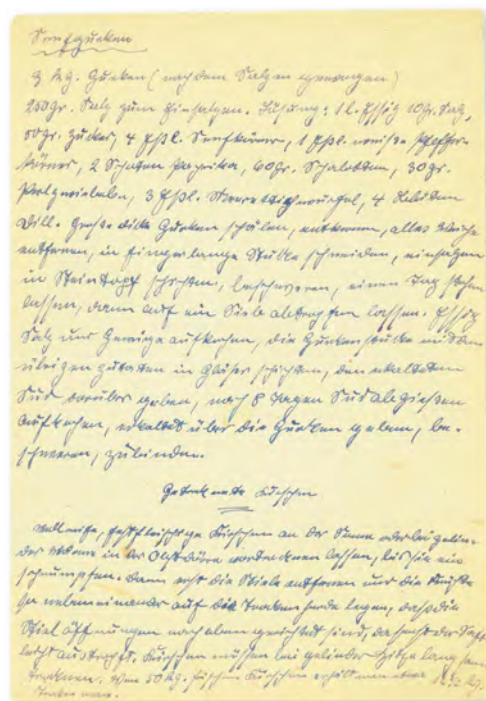 Senfgurken
3 kg. Gurken (nach dem Salzen gewogen)
250 gr. Salz zum Einsalzen. Lösung: 1 l. Essig 10 gr. Salz,
50 gr. Zucker, 4 Eßl. Senfkörner, 1 Eßl. weiße Pfeffer-
körner, 2 Schoten Paprika, 60 gr. Schalotten, 30 gr.
Perlzwiebeln, 3 Eßl. Meerrettichwürfel, 4
Dill. Große dicke Gurken schälen, entkernen, alles Weiche
entfernen, in fingerlange Stücke schneiden, einsalzen
in Steintopf schichten, beschweren, einen Tag stehen
lassen, dann auf ein Sieb abtropfen lassen. Essig
Salz und Gewürze aufkochen, die Gurkenstücke mit den
übrigen Zutaten in Gläser schichten, den erkalteten
Sud darüber geben, nach 8 Tagen Sud abgießen
aufkochen, erkaltet über die Gurken geben, be-
schweren, zubinden.
Getrocknete Kirschen
Vollreife, festfleischige Kirschen an der Sonne oder bei gelin-
der Wärme in der Obstdörre vortrocknen lassen, bis sie ein
schrumpfen. Dann erst die Stiele entfernen und die Früchte
so nebeneinander auf die legen, daß die
Stielöffnungen nach oben gerichtet sind, da sonst der Saft
leicht austropft. Kirschen müssen bei gelinder Hitze langsam
trocknen. Von 50 kg. frischen Kirschen erhält man etwa kg.